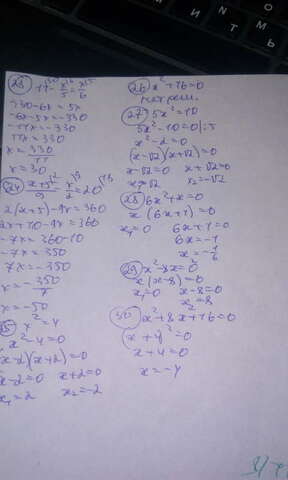 23) 11 - x/5 = x/6
330 - 6x = 5x
-6x - 5x = -330
-11x = -330
11x = 330
x = 330/11
x = 30
24) (x+5)/9 - x/2 = 20
2(x+5) - 9x = 360
2x + 10 - 9x = 360
-7x = 360 - 10
-7x = 350
7x = -350
x = -350/7
x = -50
25) x² = 4
x² - 4 = 0
(x-2)(x+2) = 0
x-2=0 x+2=0
x₁ = 2 x₂ = -2
26) x² + 16 = 0
нет реш.
27) 5x² = 10
5x² - 10 = 0 |:5
x² - 2 = 0
(x-√2)(x+√2) = 0
x-√2=0 x+√2=0
x₁=√2 x₂=-√2
28) 6x² + x = 0
x(6x+1) = 0
x₁=0 6x+1=0
6x=-1
x = -1/6
29) x² - 8x = 0
x(x-8) = 0
x₁=0 x-8=0
x₂=8
30) x² + 8x + 16 = 0
(x+4)² = 0
x+4=0
x=-4